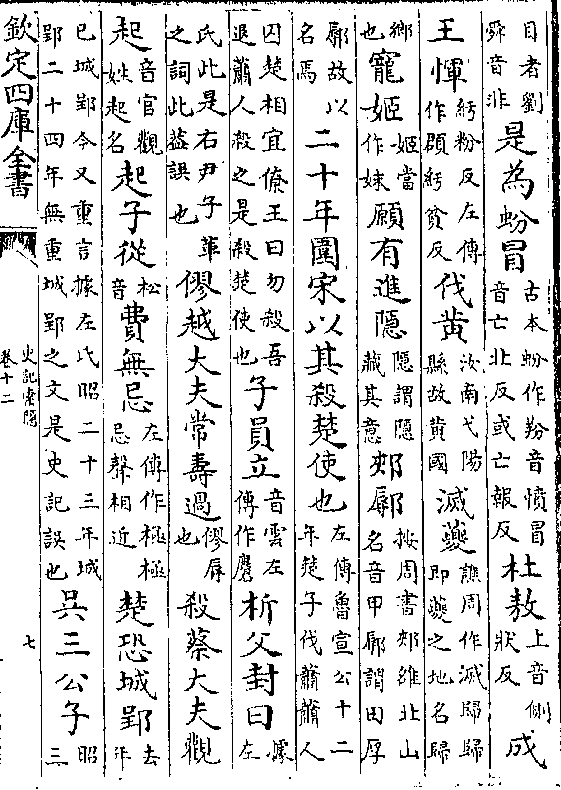 目者劉舜音非是為蚡冒古本蚡作羒音憤冒音亡北反或亡報反杜敖上音側狀反成
王惲紆粉反左傳作頵紆貧反伐黄汝南弋陽縣故黄國滅夔譙周作滅歸歸即夔之地名歸
鄉也寵姬姬當作妹願有進隠隠謂隠藏其意郟鄏按周書郟雒北山名音甲鄏謂田厚
鄏故以名焉二十年圍宋以其殺楚使也左傳魯宣公十二年楚子伐蕭蕭人
囚楚相宜僚王曰勿殺吾退蕭人殺之是殺楚使也子員立音雲左傳作麏析父封曰據左
氏此是右尹子革之詞此葢誤也僇越大夫常壽過僇辱也殺蔡大夫觀
起音官觀姓起名起子從松音費無忌左傳作極極忌聲相近楚恐城郢去年
已城郢今又重言據左氏昭二十三年城郢二十四年無重城郢之文是史記誤也吳三公子昭三
欽定四庫全書
史記索隠
卷十二
七